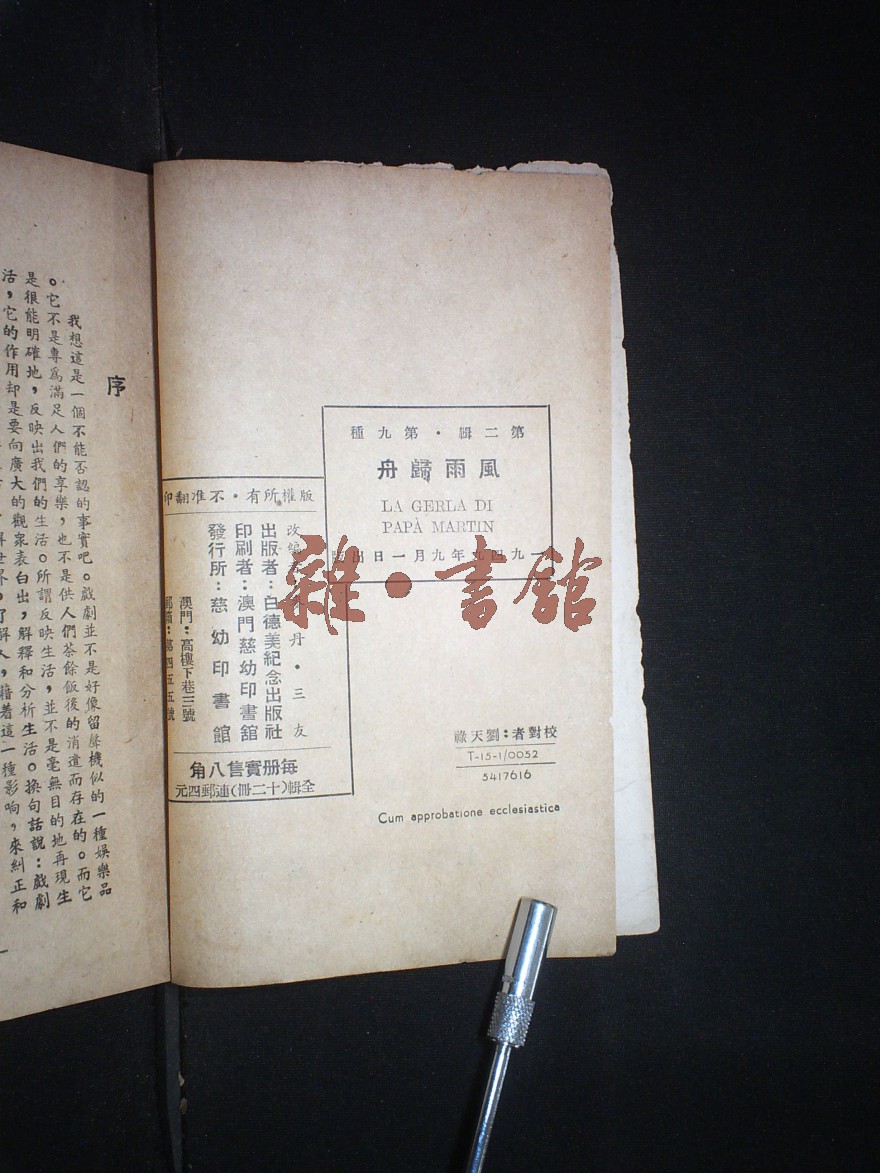 第二輯・第九種
風雨歸舟
LA GERLA DI
PAPÀ MARTIN
一九四九年九月一日出版
版權所有・不准翻印
改編
丹・三友
出版者：白德美紀念出版社
印刷者：澳門慈幼印書舘
發行所：慈幼印書館
澳門：高樓下巷三號
郵箱：第四五五號
每册實售八角
全輯(十二冊)連郵四元
校對者：劉天祿
T-15-1/0052
5417616
Cum approbatione ecclesiastica
雜・書館
序
我想這是一個不能否認的事實吧。戲劇並不是好像留聲機似的一種娛樂品
。它不是專爲滿足人們的享樂，也不是供人們茶餘飯後的消遣而存在的。而它
是很能明確地，反映出我們的生活。所謂反映生活，並不是毫無目的地再現生
活，它的作用却是要向廣大的觀衆表白出，解釋和分析生活。換句話說：戲劇
解世界，了解人，藉着這一種影响，來糾正和